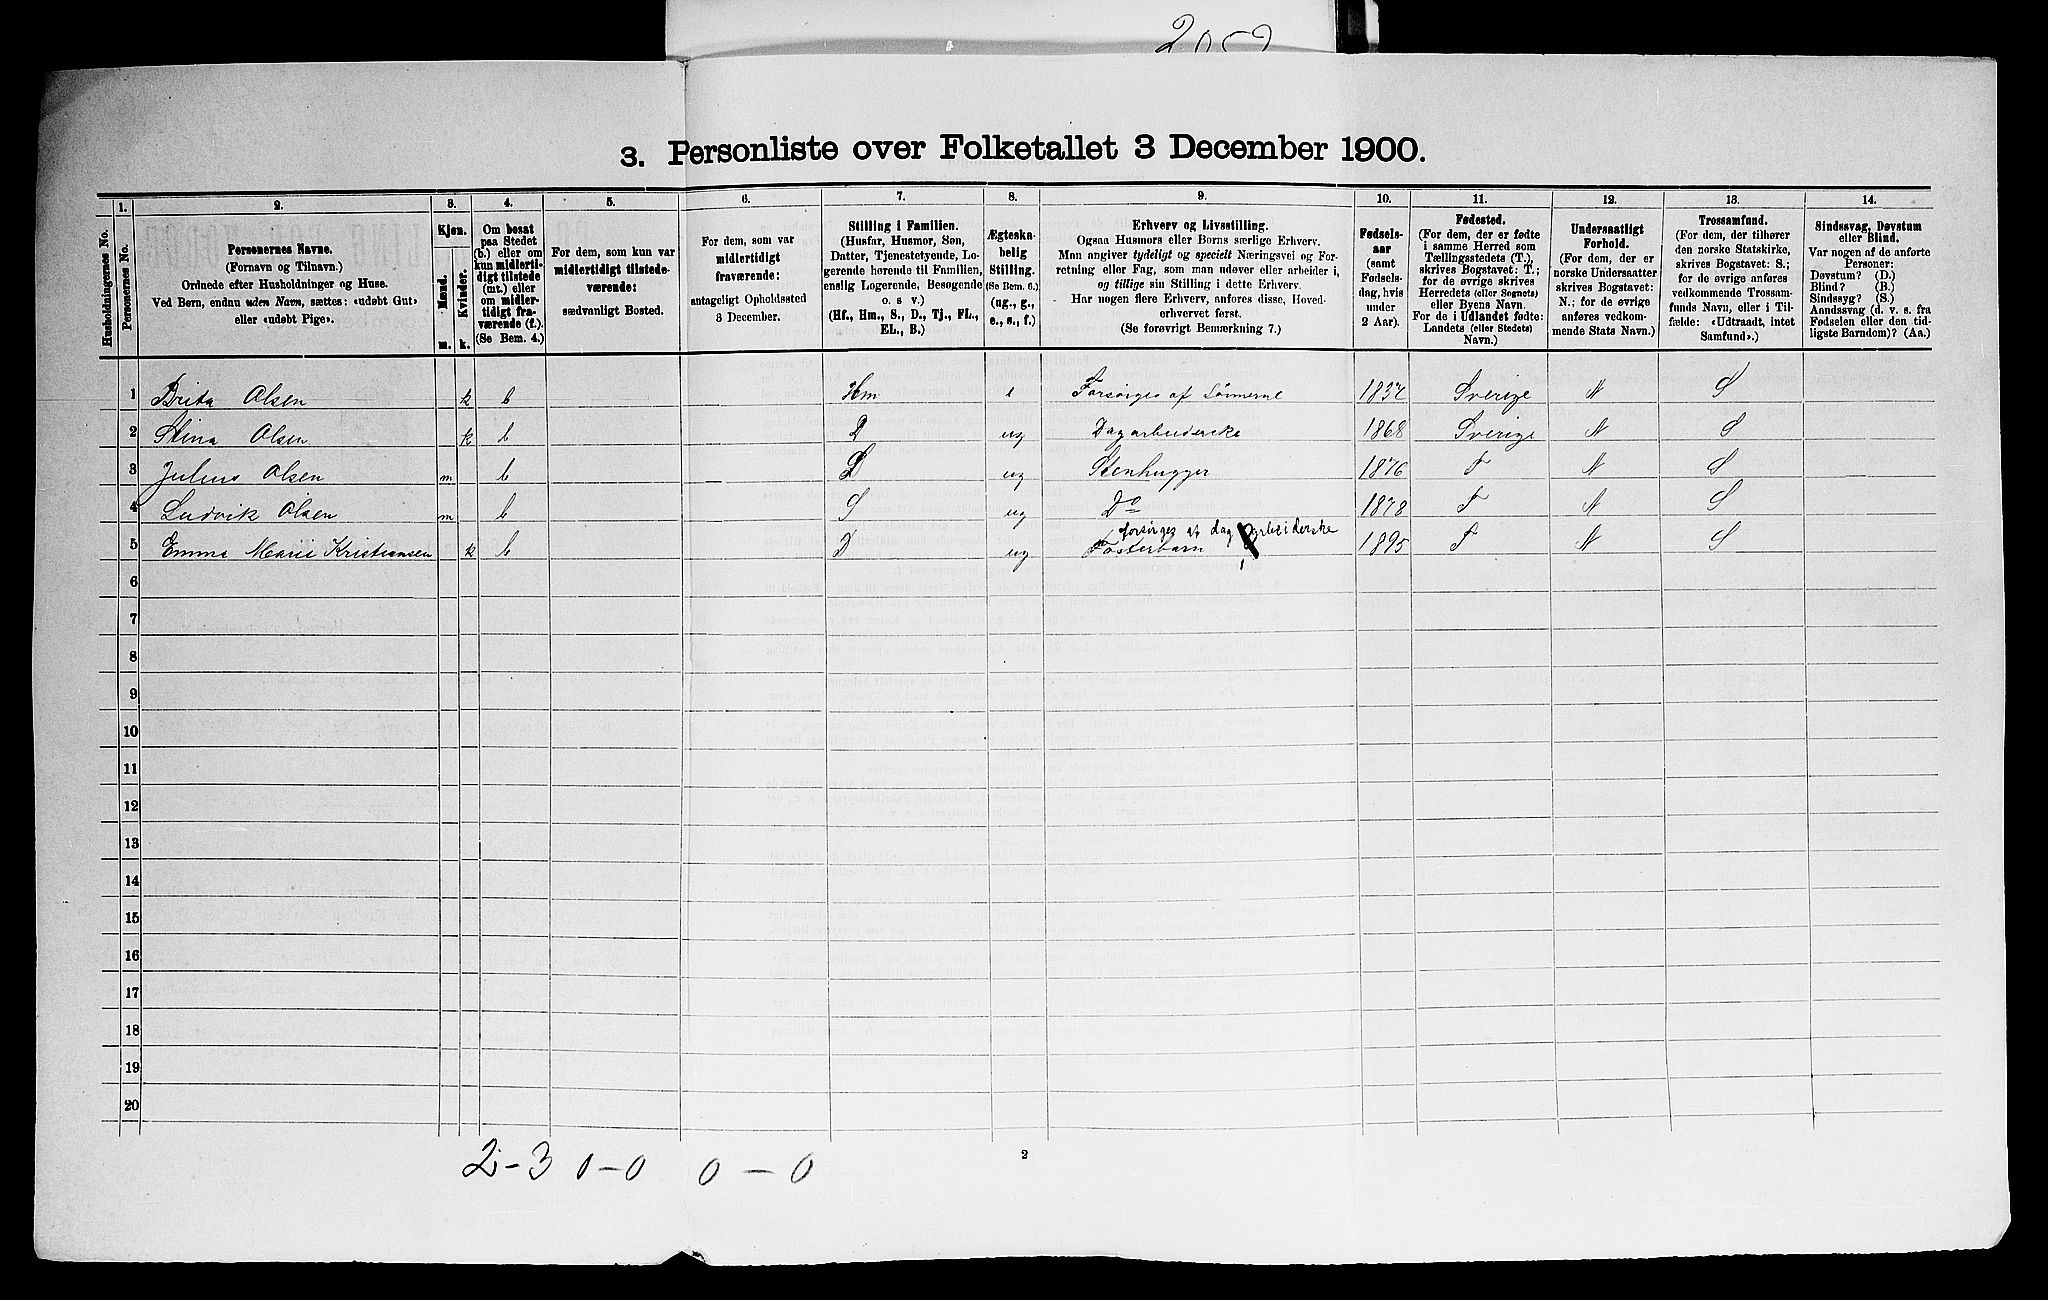 2052
3. Personliste over Folketallet 3 December 1900.
1. 2. 3. 4. 5. 6. 7. 8. 9. 10. 11. 12. 13. 14.
Husholdningernes No.
Personernes No.
Personernes Navne.
(Fornavn og Tilnavn.)
Ordnede efter Husholdninger og Huse.
Ved Børn, endnu uden Navn, sættes: «udøbt Gut»
eller «udøbt Pige».
Kjøn.
Mænd.
Kvinder.
m. k.
Om bosat
paa Stedet
(b.) eller om
kun midlerti-
digt tilstede
(mt.) eller
om midler-
tidigt fra-
værende (f.).
(Se Bem. 4.)
For dem, som kun var
midlertidigt tilstede-
værende:
sædvanligt Bosted.
For dem, som var
midlertidigt
fraværende:
antageligt Opholdssted
3 December.
Stilling i Familien.
(Husfar, Husmor, Søn,
Datter, Tjenestetyende, Lo-
gerende hørende til Familien,
enslig Logerende, Besøgende
o. s v.)
(Hf., Hm., S., D., Tj., FL.,
EL., B.)
Ægteska-
belig
Stilling.
(Se Bem. 6.)
(ug., g.,
e., s., f.)
Erhverv og Livsstilling.
Ogsaa Husmors eller Børns særlige Erhverv.
Man angiver tydeligt og specielt Næringsvei og For-
retning eller Fag, som man udøver eller arbeider i,
og tillige sin Stilling i dette Erhverv.
Har nogen flere Erhverv, anføres disse, Hoved-
erhvervet først.
(Se forøvrigt Bemærkning 7.)
Fødsels-
aar
(samt
Fødsels-
dag, hvis
under
2 Aar).
Fødested.
(For dem, der er fødte
i samme Herred som
Tællingsstedets (T.),
skrives Bogstavet: T.;
for de øvrige skrives
Herredets (eller Sognets)
eller Byens Navn.
For de i Udlandet fødte:
Landets (eller Stedets)
Navn.)
Undersaatligt
Forhold.
(For dem, der er
norske Undersaatter
skrives Bogstavet:
N.; for de øvrige
anføres vedkom-
mende Stats Navn.)
Trossamfund.
(For dem, der tilhører
den norske Statskirke,
skrives Bogstavet: S.;
for de øvrige anføres
vedkommende Trossam-
funds Navn, eller i Til-
fælde: «Udtraadt, intet
Samfund».)
Sindssvag, Døvstum
eller Blind.
Var nogen af de anførte
Personer:
Døvstum? (D.)
Blind? (B.)
Sindssyg? (S.)
Aandssvag (d. v. s. fra
Fødselen eller den tid-
ligste Barndom)? (Aa.)
1 Brita Olsen k b Hm e Forsørges af Sønnerne Sverige N S
2 Stina Olsen k b D ug Dagarbeiderske 1868 Sverige N S
3 Julius Olsen m b ug Stenhugger 1876 T N S
4 Ludvik Olsen m b S ug Do 1878 T N S
forsørges af dagarbeiderske
5 Emma Marie Kristiansen k b D ug Fosterbarn 1895 T N S
6
7
8
9
10
11
12
13
14
15
16
17
18
19
20
2-3 0-0 0-0
2